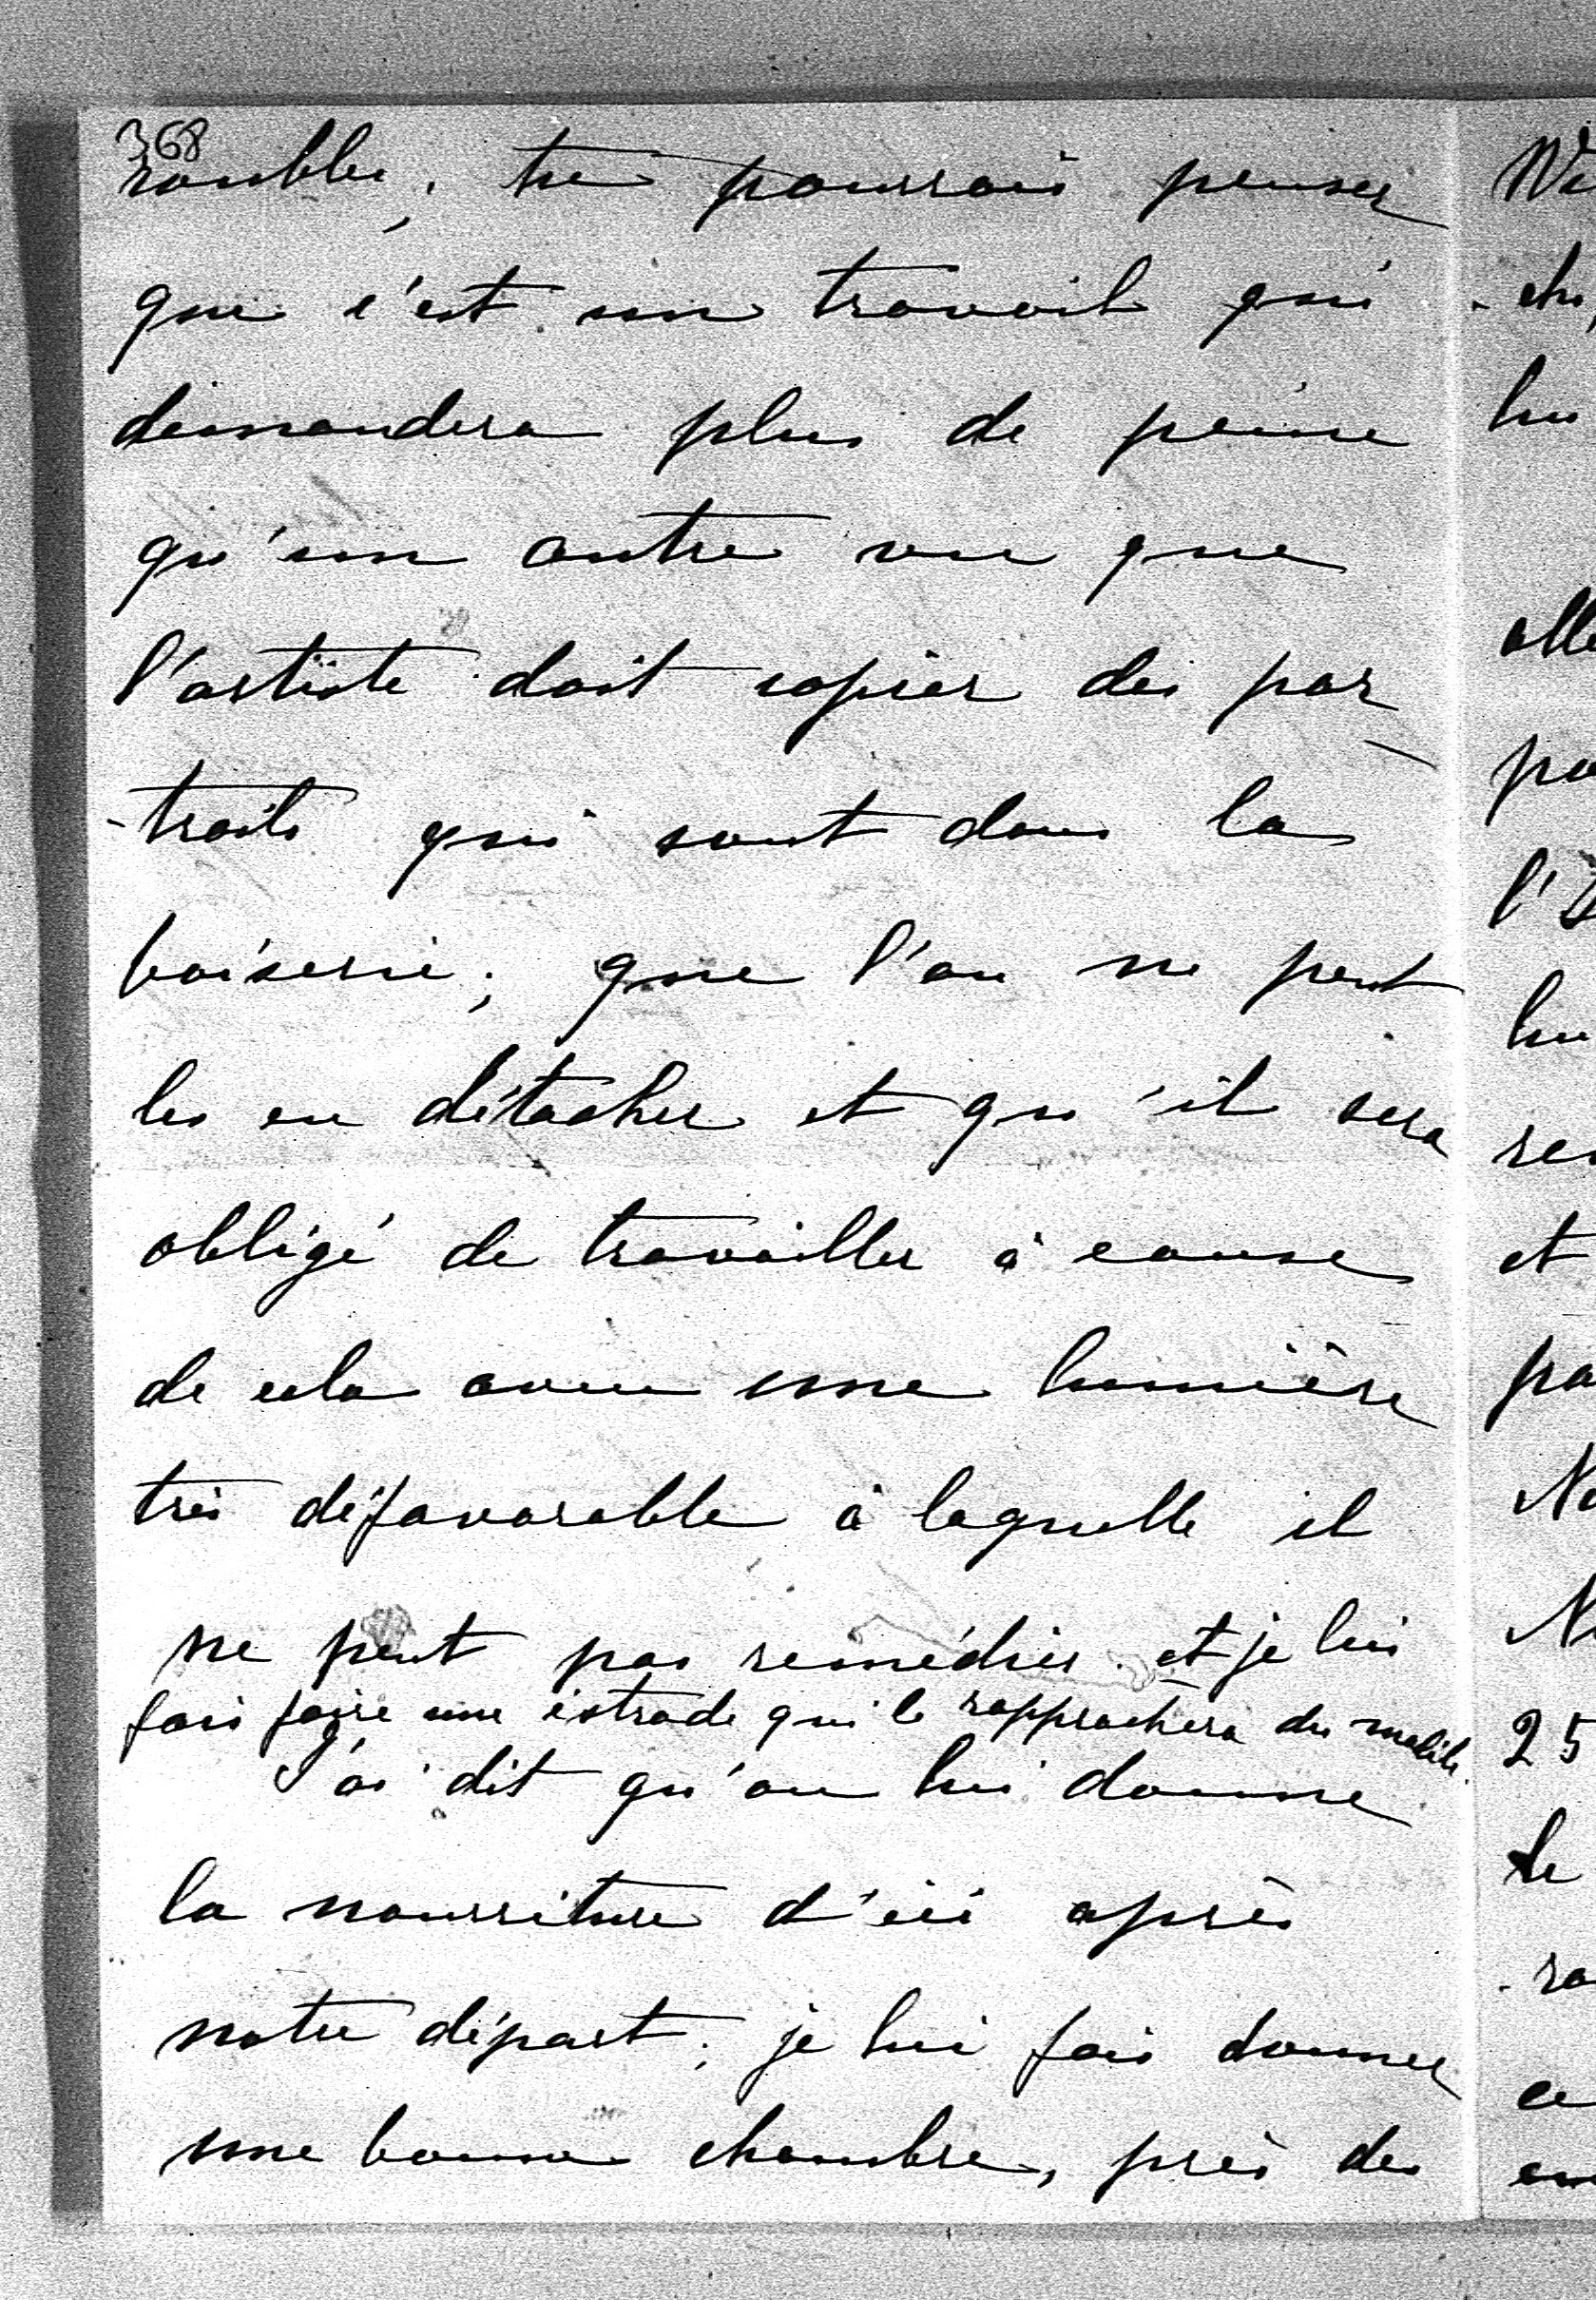 368
roubles; tu pourrais penser
que c'est un travail qui
demandera plus de peine
qu'un autre vu que
l'artiste doit copier des por
-traits qui sont dans la
boiserie; que l'on ne peut
les en détacher et qu'il sera
obligé de travailler à cause
de cela avec une lumière
très défavorable à laquelle il
ne peut pas remédier. et je lui
fais faire une estrade qui le rapprochera du
J'ai dit qu'on lui donne
la nourriture d'ici après
notre départ; je lui fais donner
une bonne chambre, près de